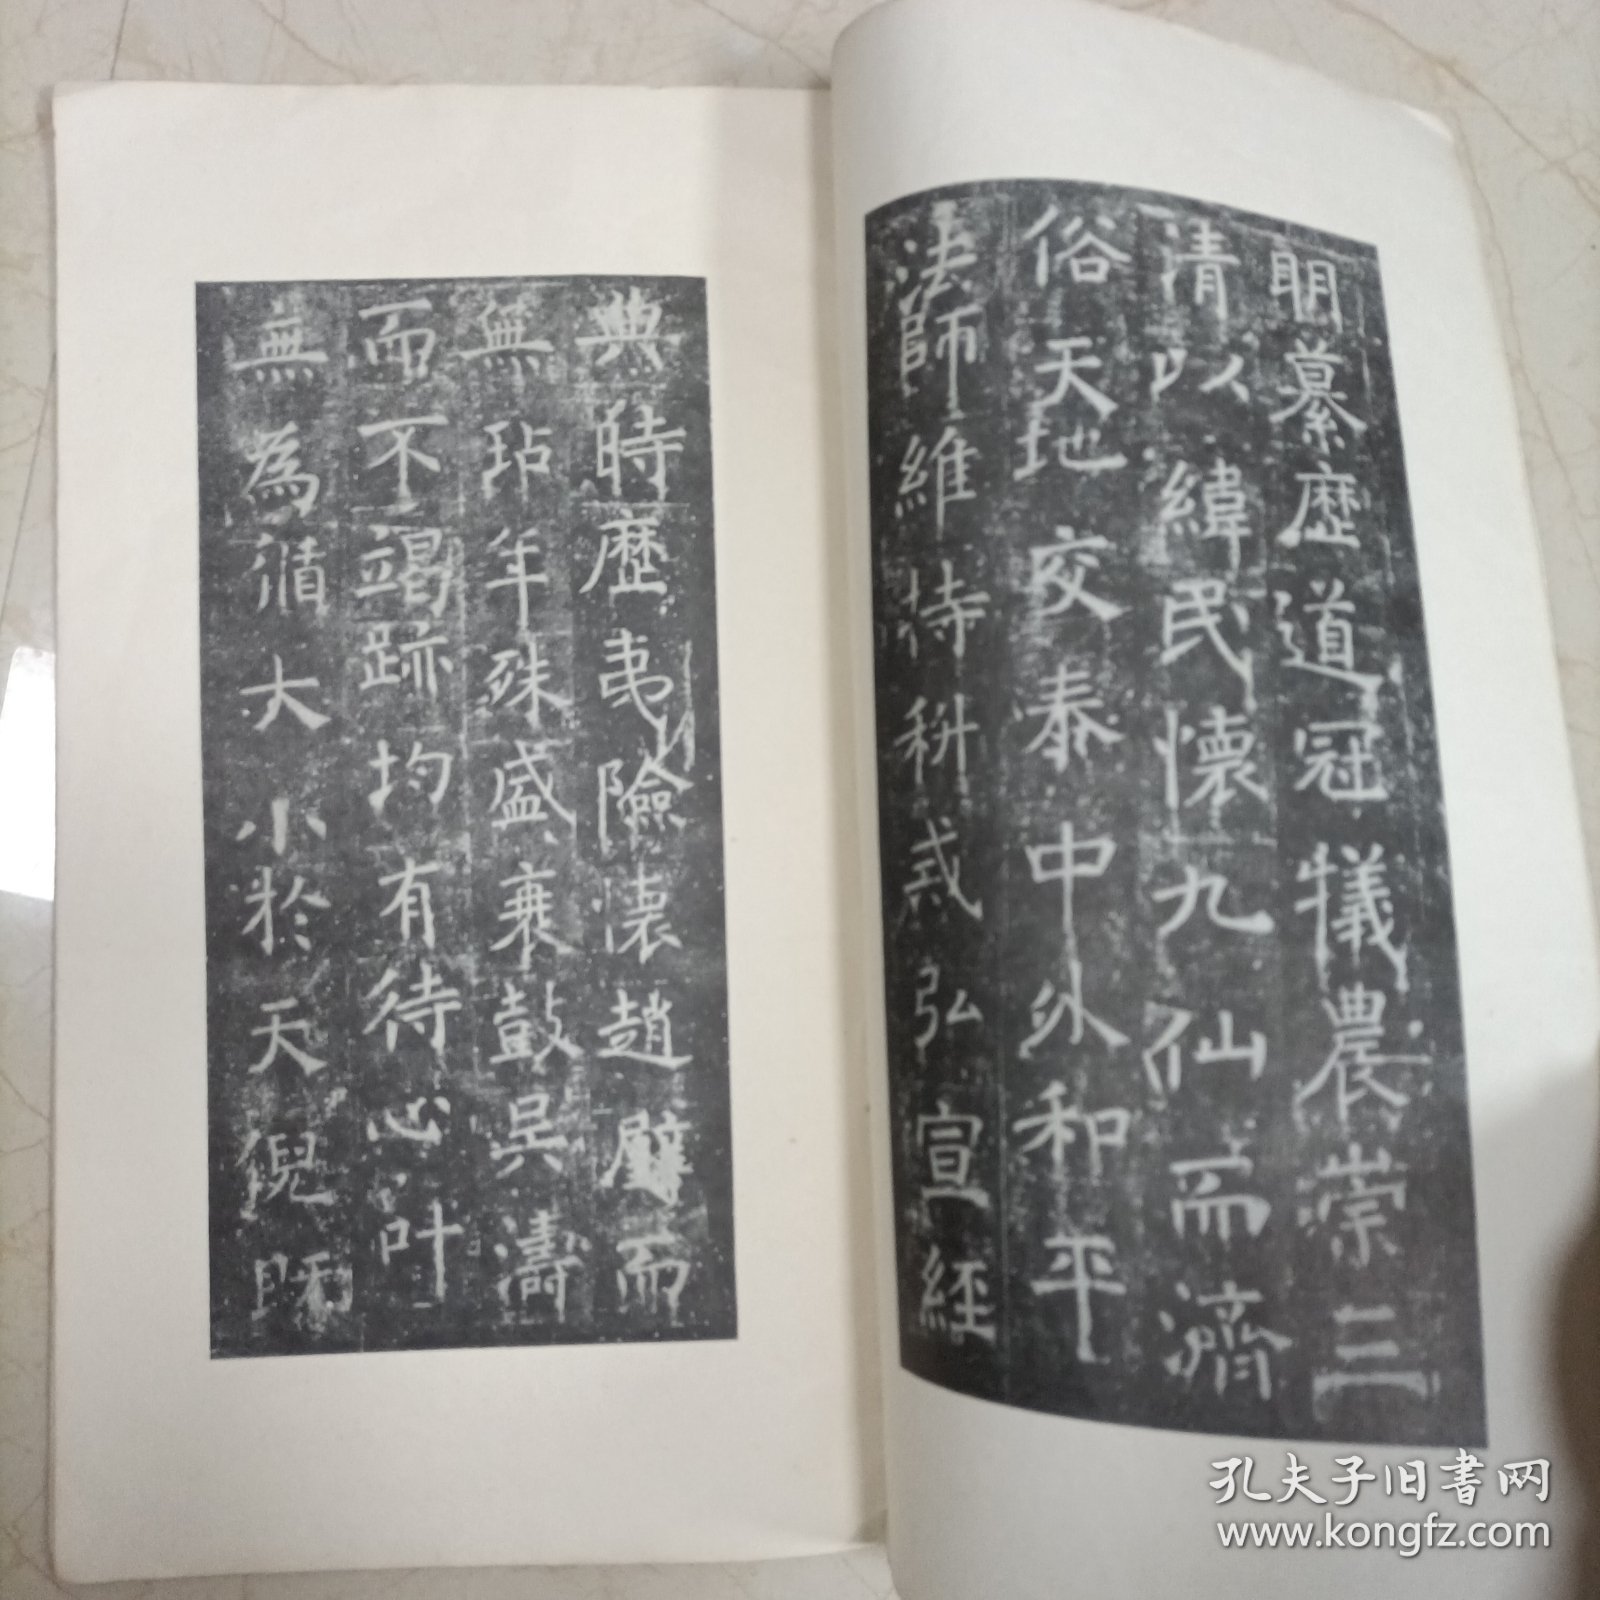 明纂歷道冠犧農崇三
清以緯民懷九仙而濟
俗天地交泰中外和平
法師維持科戒弘宣經
典時歷夷險懷趙璧而
無玷年殊盛衰鼓吳濤
而不竭跡均有待心叶
無為循大小於天倪既
孔夫子旧书网
www.kongfz.com